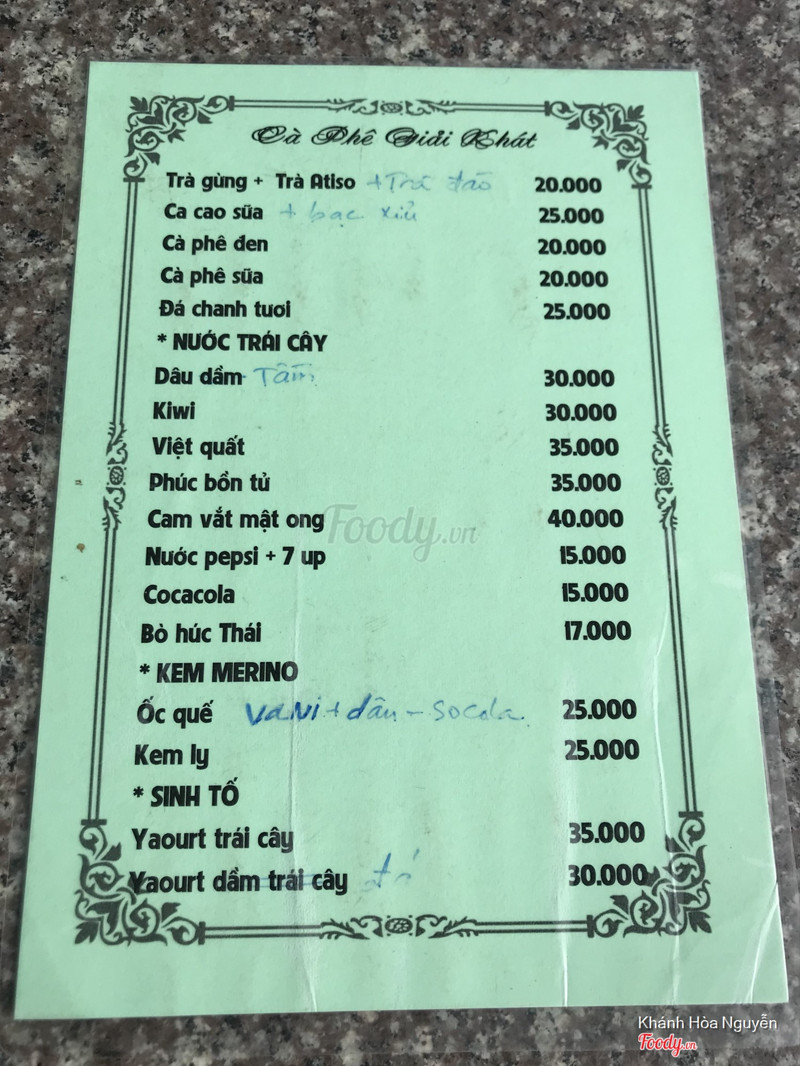 Cà Phê Giải Khát
Trà gừng + Trà Atiso + Trà đào 20.000
Ca cao sữa + bạc xỉu 25.000
Cà phê đen 20.000
Cà phê sữa 20.000
Đá chanh tươi 25.000
* NƯỚC TRÁI CÂY
Dâu dầm - Tầm 30.000
Kiwi 30.000
Việt quất 35.000
Phúc bồn tử 35.000
Cam vắt mật ong 40.000
Foody.vn
Nước pepsi + 7 up 15.000
Cocacola 15.000
Bò húc Thái 17.000
* KEM MERINO
Ốc quế vaNi + dâu - Socola 25.000
Kem ly 25.000
* SINH TỐ
Yaourt trái cây 35.000
Yaourt dầm trái cây đá 30.000
Khánh Hòa Nguyễn
Foody.vn